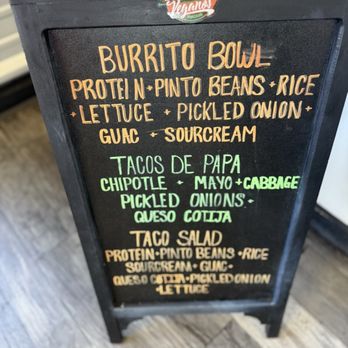 Veganos
BURRITO BOWL
PROTEIN + PINTO BEANS + RICE
+ LETTUCE + PICKLED ONION +
GUAC + SOURCREAM
TACOS DE PAPA
CHIPOTLE + MAYO + CABBAGE
PICKLED ONIONS +
QUESO COTIJA
TACO SALAD
PROTEIN + PINTO BEANS + RICE
SOURCREAM + GUAC +
QUESO COTIJA + PICKLED ONION
+ LETTUCE